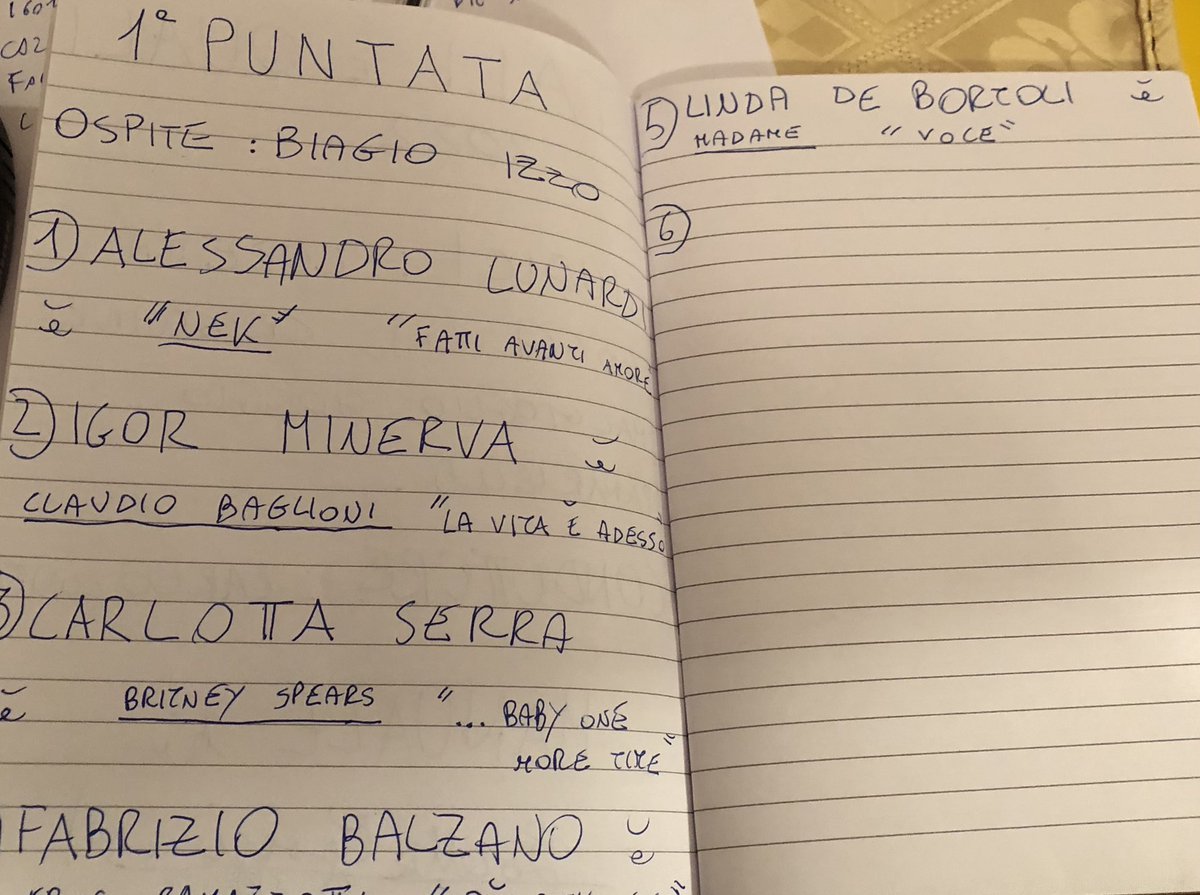 1601
1ª PUNTATA
OSPITE : BIAGIO IZZO
1) ALESSANDRO LUNARDI
è "NEK" "FATTI AVANTI AMORE"
2) IGOR MINERVA è
CLAUDIO BAGLIONI "LA VITA È ADESSO"
3) CARLOTTA SERRA
è BRITNEY SPEARS "... BABY ONE
MORE TIME"
FABRIZIO BALZANO è
5) LINDA DE BORTOLI è
MADAME "VOCE"
6)